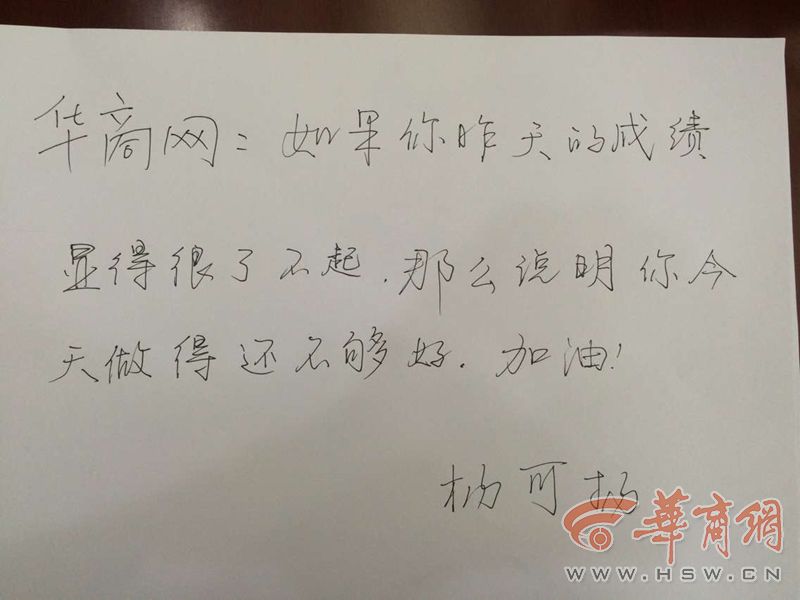 华商网：如果你昨天的成绩
显得很了不起，那么说明你今
天做得还不够好．加油！
杨可扬
華商網
WWW.HSW.CN